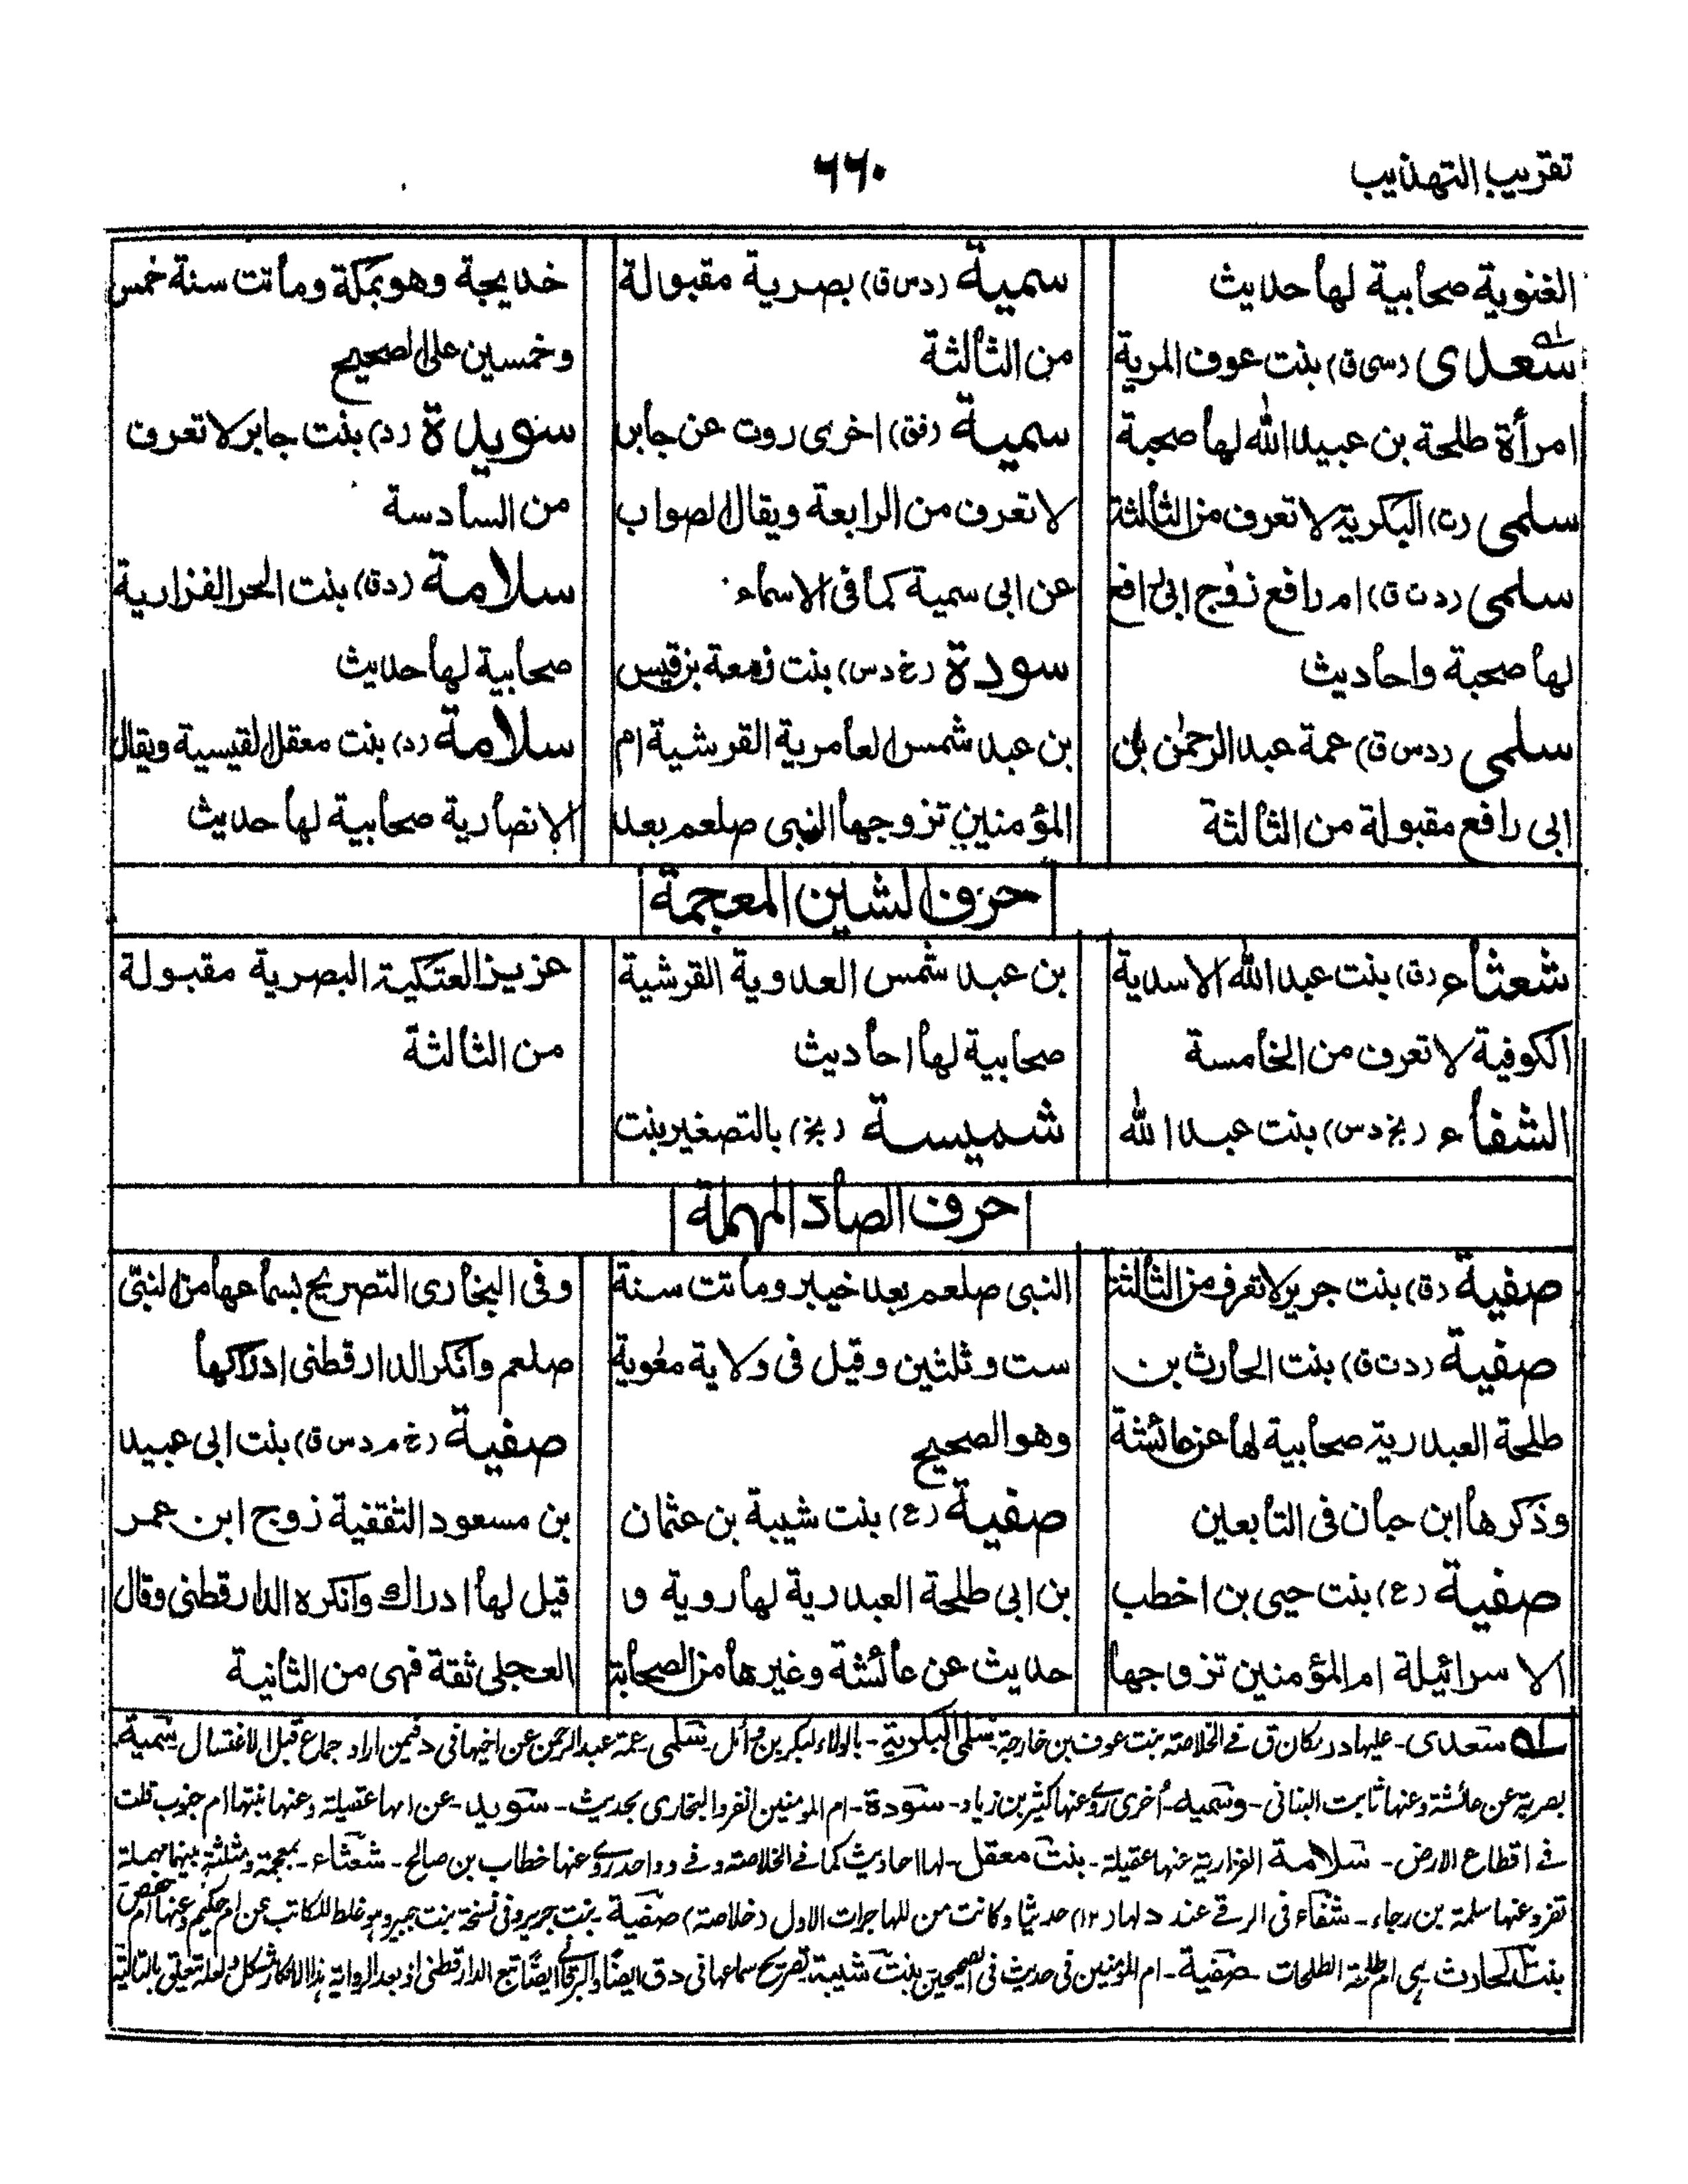 تقريب التهذيب
٦٦٠
الغنوية صحابية لها حديث
سعدى (سى ق) بنت عوف المرية
امرأة طلحة بن عبيد الله لها صحبة
سلمى (ت) البكرية لا تعرف من الثالثة
سلمى (د ت ق) ام رافع زوج ابى رافع
لها صحبة واحاديث
سلمى (د س ق) عمة عبد الرحمٰن بن
ابى رافع مقبولة من الثالثة
سمية (د س ق) بصرية مقبولة
من الثالثة
سمية (فق) اخرى روت عن جابر
لا تعرف من الرابعة ويقال الصواب
عن ابى سمية كما فى الاسماء
سودة (خ د س) بنت زمعة بن قيس
بن عبد شمس العامرية القرشية ام
المؤمنين تزوجها النبى صلعم بعد
خديجة وهو بمكة وماتت سنة خمس
وخمسين على الصحيح
سويدة (د) بنت جابر لا تعرف
من السادسة
سلامة (د ق) بنت الحر الفزارية
صحابية لها حديث
سلامة (د) بنت معقل القيسية ويقال
الانصارية صحابية لها حديث
حرف الشين المعجمة
شعثاء (ق) بنت عبد الله الاسدية
الكوفية لا تعرف من الخامسة
الشفاء (بخ د س) بنت عبد الله
بن عبد شمس العدوية القرشية
صحابية لها احاديث
شميسة (بخ) بالتصغير بنت
عزيز العتكية البصرية مقبولة
من الثالثة
حرف الصاد المهملة
صفية (د ق) بنت جرير لا تعرف من الثالثة
صفية (د ت ق) بنت الحارث بن
طلحة العبدرية صحابية لها عن عائشة
وذكرها ابن حبان فى التابعين
صفية (ع) بنت حيى بن اخطب
الاسرائيلة ام المؤمنين تزوجها
النبى صلعم بعد خيبر وماتت سنة
ست وثلثين وقيل فى ولاية معٰوية
وهو الصحيح
صفية (ع) بنت شيبة بن عثمان
بن ابى طلحة العبدرية لها روية و
حديث عن عائشة وغيرها من الصحابة
وفى البخارى التصريح بسماعها من النبى
صلعم وانكر الدارقطنى ادراكها
صفية (خ م د س ق) بنت ابى عبيد
بن مسعود الثقفية زوج ابن عمر
قيل لها ادراك وانكره الدارقطنى وقال
العجلى ثقة فهى من الثانية
سعدى - عليها در بكان ق فى الخلاصة بنت عوف بن خارجة سلمى البكرية - بالولاء لبكر بن وائل سلمى عمة عبد الرحمن عن اخيها فى د فيمن اراد جماع قبل الاغتسال سمية
بصرية عن عائشة وعنها ثابت البنانى - وسميه - اخرى روى عنها كثير بن زياد - سودة - ام المومنين انفرد البخارى بحديث - سويد - عن امها عقيلة وعنها بنتها ام جنوب قلت
فى اقطاع الارض - سلامة الفزارية عنها عقيلة - بنت معقل - لها احاديث كما فى الخلاصة وفى د واحد روى عنها خطاب بن صالح - شعثاء - بمعجمة ومثلثة بينهما مهملة
تفرد عنها سلمة بن رجاء - شفاء فى الرقى عند د لها (١٢) حديثا وكانت من المهاجرات الاول (خلاصة) صفية - بنت جرير وفى نسخة بنت جبير وهو غلط الكاتب عن ام حكيم وعنها ام حفص
بنت الحارث - هى ام طلحة الطلحات - صفية - ام المؤمنين فى حديث فى الصحيحين بنت شيبة تصريح سماعها فى د ق ايضا والبرقانى ايضا تبع الدارقطنى